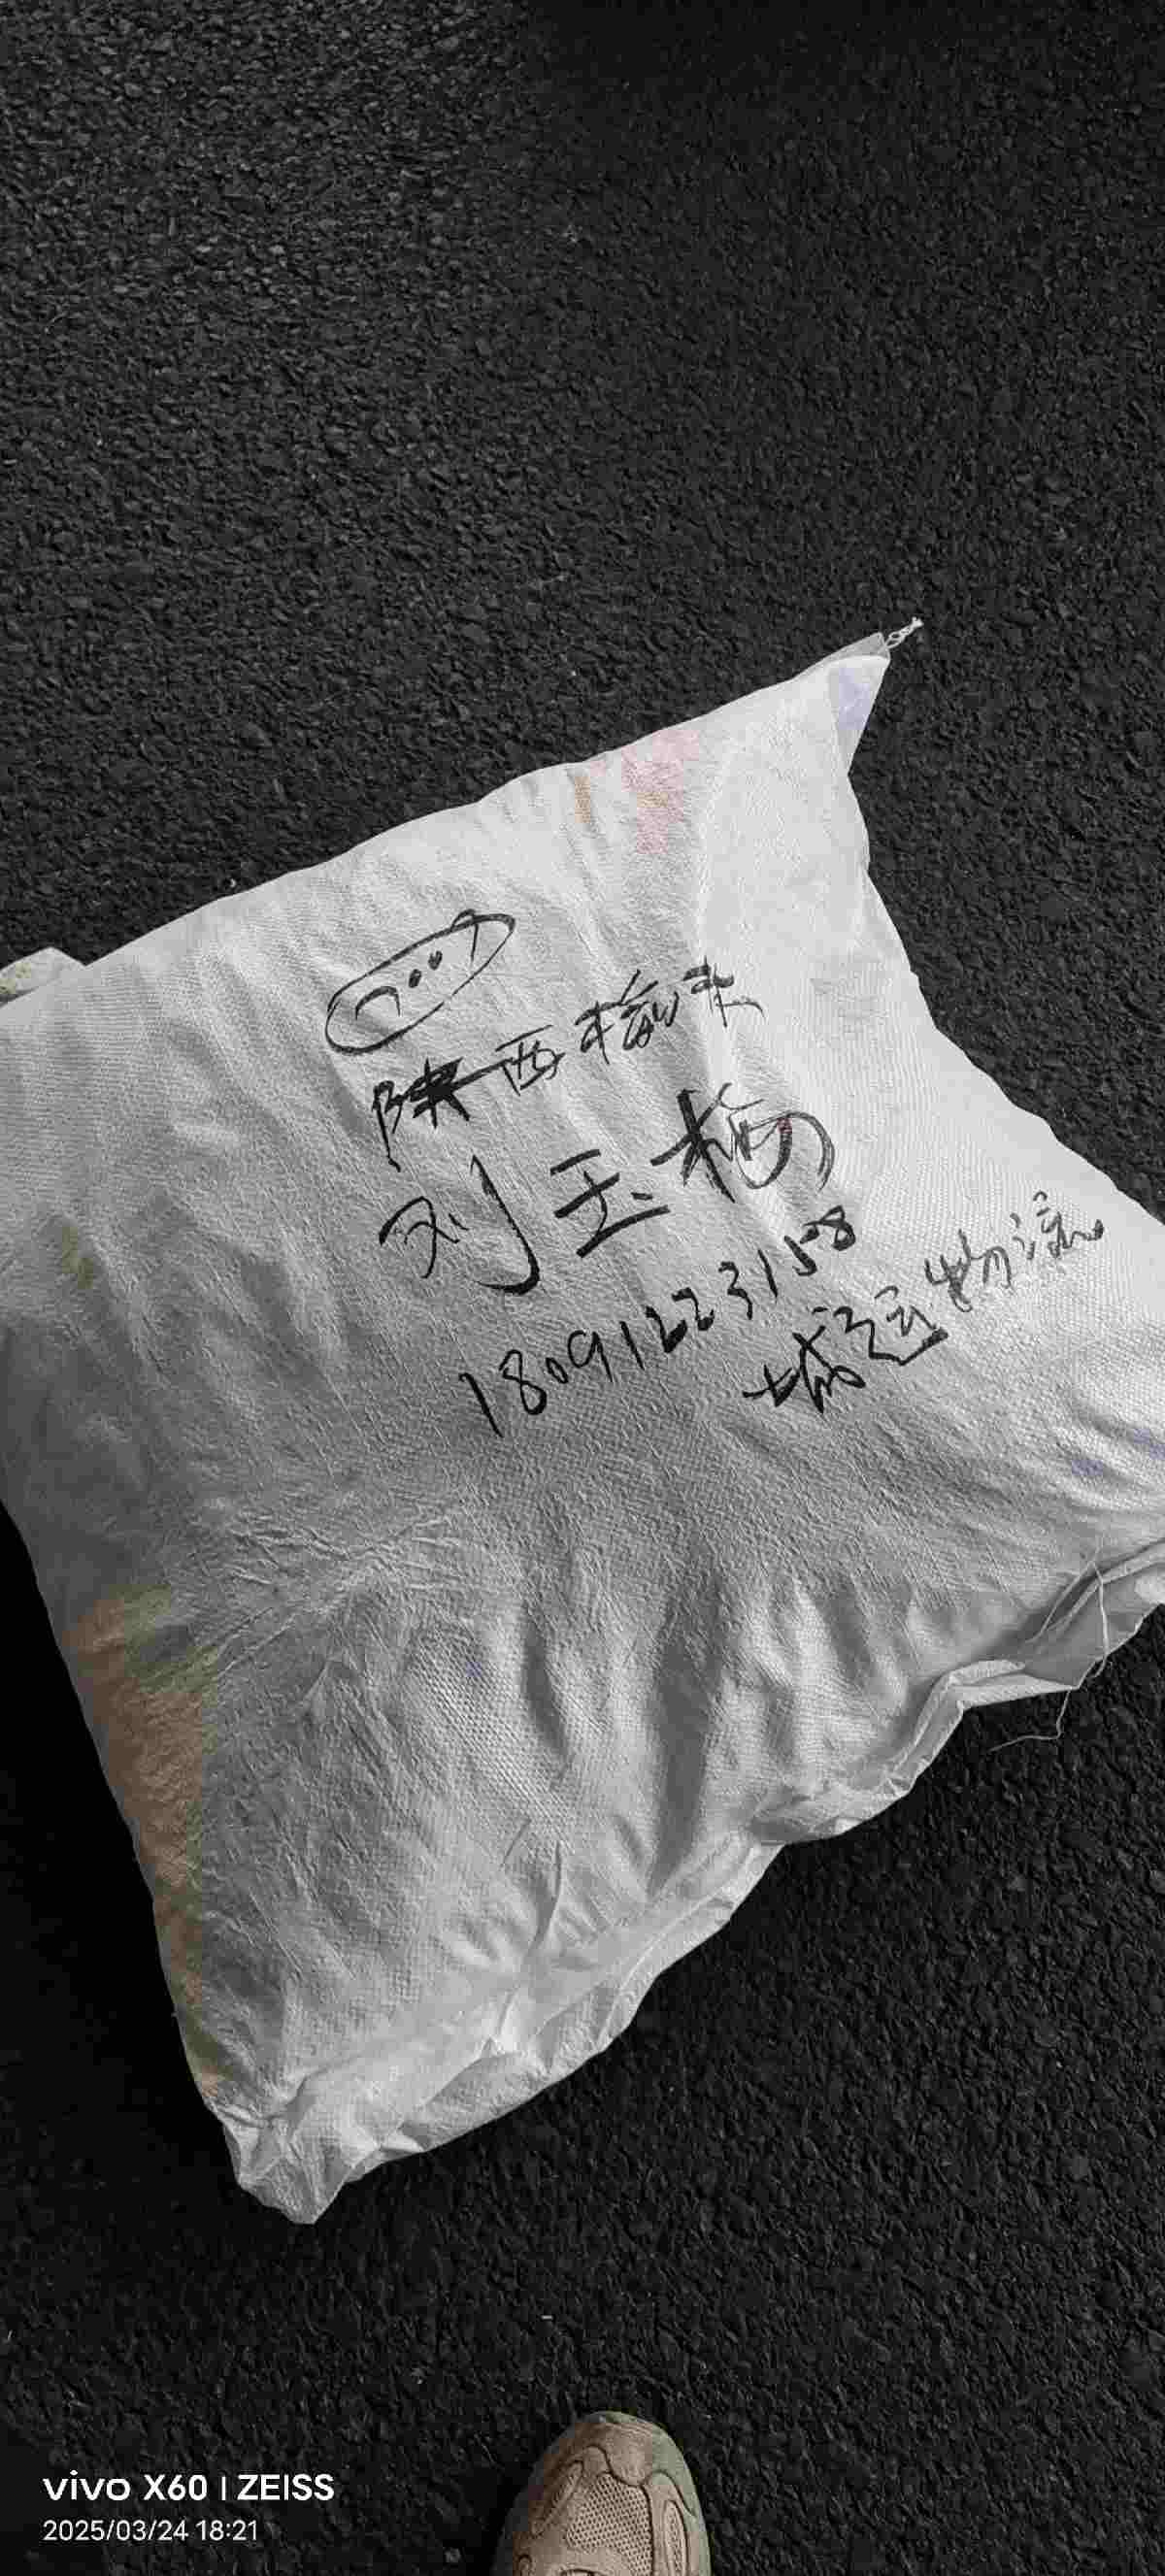 陕西榆林
刘玉梅
18091223158
城运物流
vivo X60 | ZEISS
2025/03/24 18:21